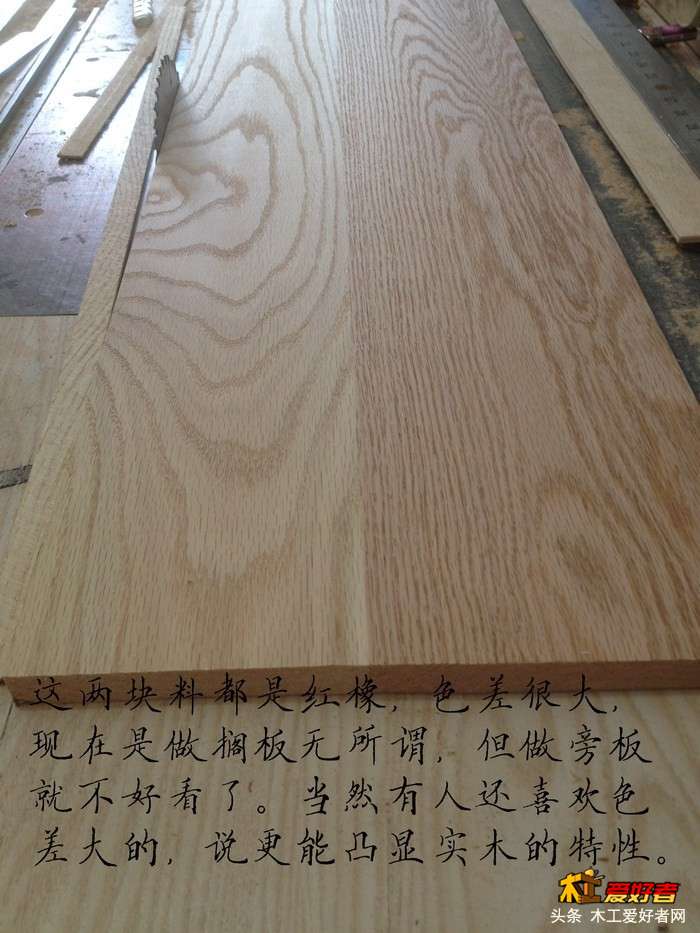 这两块料都是红橡，色差很大，
现在是做搁板无所谓，但做旁板
就不好看了。当然有人还喜欢色
差大的，说更能凸显实木的特性。
木工爱好者
头条 木工爱好者网